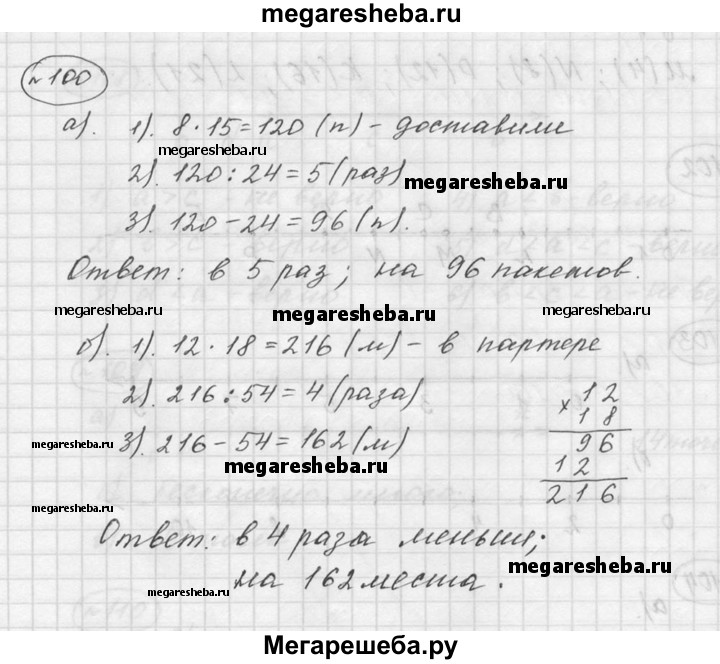 megaresheba.ru
№100
а). 1). 8·15=120 (п) - доставили
megaresheba.ru
2). 120:24=5 (раз)
megaresheba.ru
3). 120-24=96 (п).
Ответ: в 5 раз; на 96 пакетов.
megaresheba.ru megaresheba.ru megaresheba.ru
б). 1). 12·18=216 (м) - в партере
2). 216:54=4 (раза)
megaresheba.ru
3). 216-54=162 (м)
megaresheba.ru
×12
18
96
12
216
Ответ: в 4 раза меньше;
на 162 места.
megaresheba.ru megaresheba.ru
Мегарешеба.ру